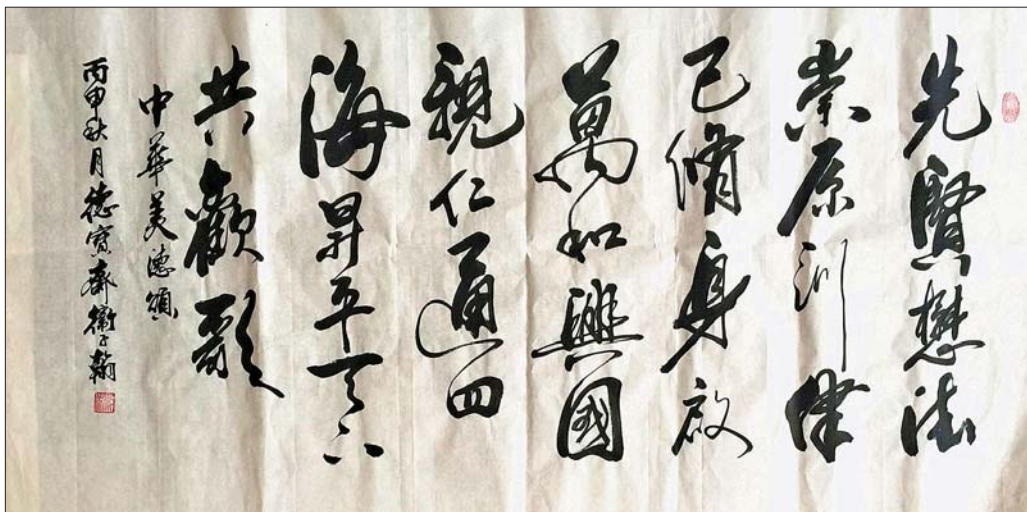 先賢懋法
崇原訓律
己脩身啟
萬和興國
親仁通四
海昇平天下
共歡歌
中華美德頌
丙申秋月德寶齋衛子翰